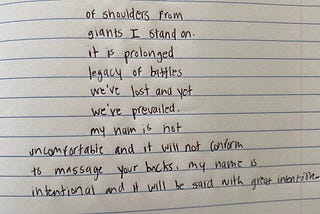 of shoulders from
giants I stand on.
it is prolonged
legacy of battles
we've lost and yet
we've prevailed.
my nam is not
uncomfortable and it will not conform
to massage your backs. my name is
intentional and it will be said with great intention.